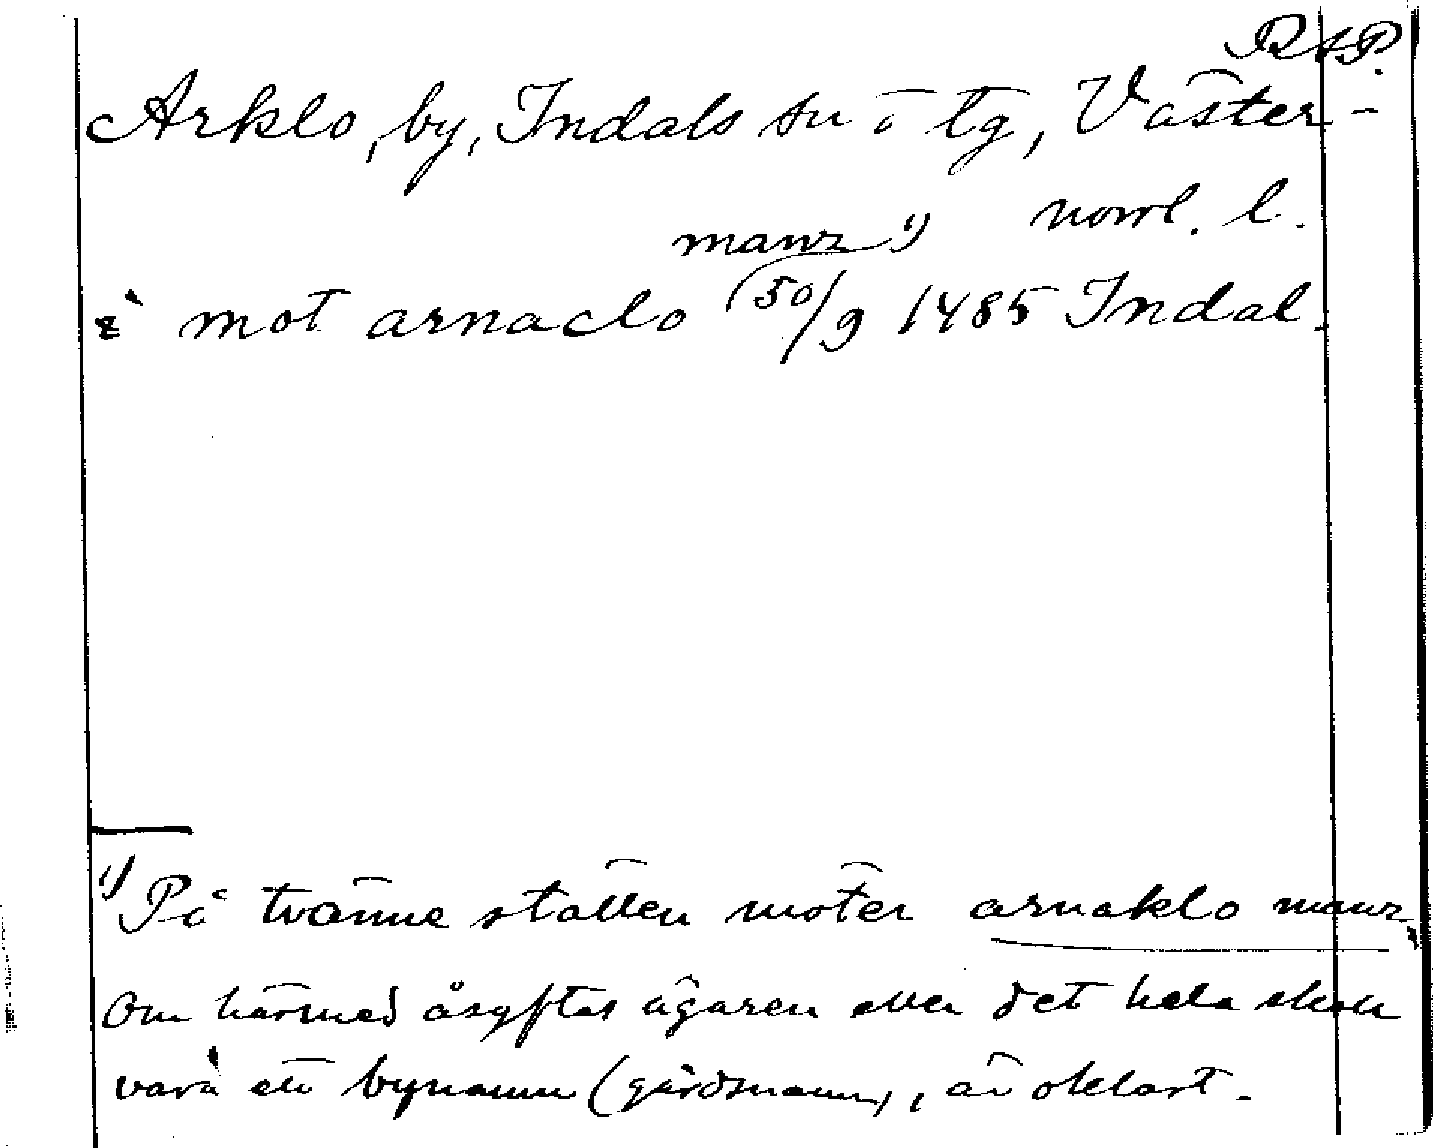 RAP.
Arklo, by, Indals sn o tg, Väster-
norrl. l.
manz 1)
i mot arnaclo 50/9 1485 Indal.
1) På tvänne ställen möter arnaklo manz,
Om härmed åsyftas ägaren eller det hela skall
vara ett bynamn (gårdsnamn), är oklart.